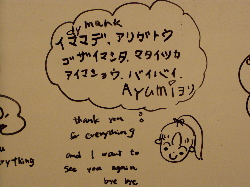 dy mank
イママデ、アリガトウ
ゴザイマシタ、マタイツカ
アイマショウ、バイバイ
Ayumiヨリ
thank you
for everything
and I want to
see you again
bye bye
u
erything